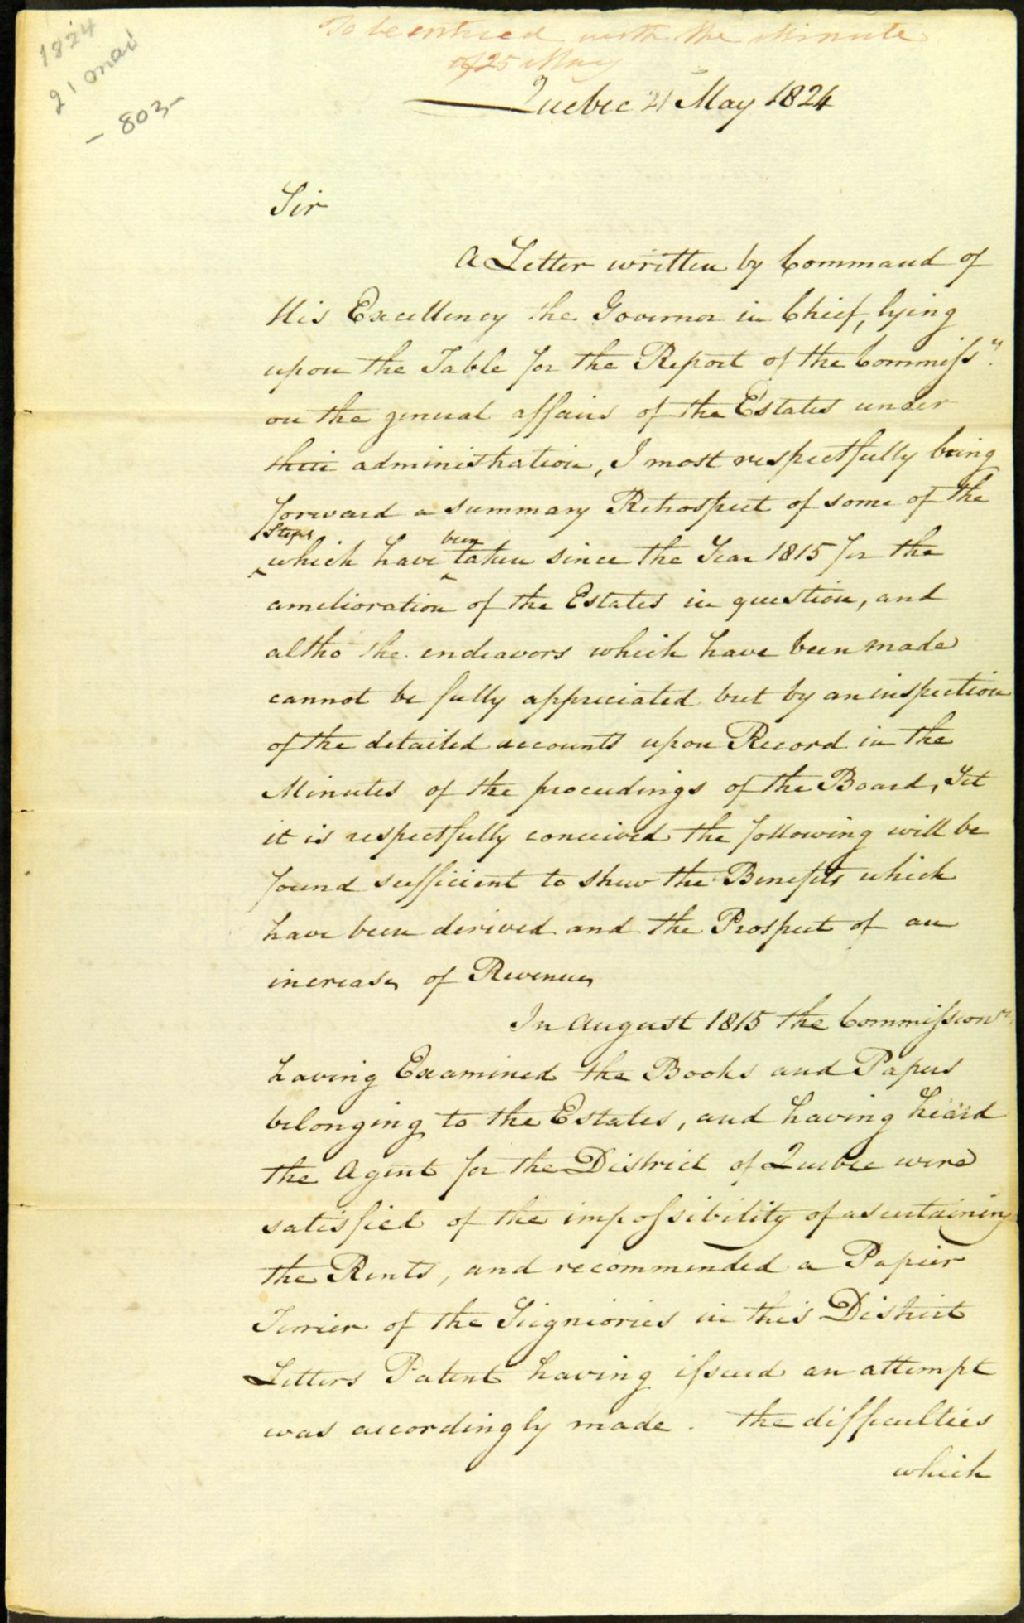 1824
21 mai
- 803 -
To be entered with the Minute
of 25 May
Quebec 21 May 1824
Sir
A Letter written by Command of
His Excellency the Governor in Chief, lying
upon the Table for the Report of the Commiss.rs
on the general affairs of the Estates under
their administration, I most respectfully bring
forward a summary Retrospect of some of the
Steps been
which have taken since the Year 1815 for the
amelioration of the Estates in question, and
altho the endeavors which have been made
cannot be fully appreciated but by an inspection
of the detailed accounts upon Record in the
Minutes of the proceedings of the Board, Yet
it is respectfully conceived the following will be
found sufficient to shew the Benefits which
have been derived and the Prospect of an
increase of Revenue
In August 1815 the Commissionrs
having Examined the Books and Papers
belonging to the Estates, and having heard
the Agent for the District of Quebec were
satisfied of the impossibility of ascertaining
the Rents, and recommended a Papier
Terrier of the Seigniories in this District
Letters Patent having issued an attempt
was accordingly made. the difficulties
which